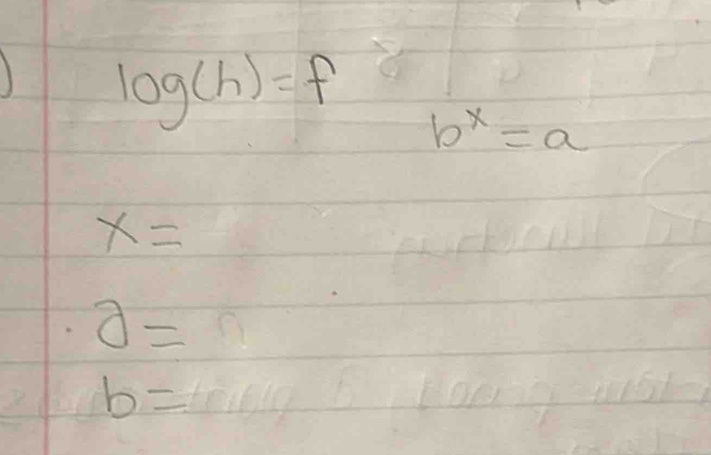 ) log(h) = f
b^x = a
x =
a =
b =